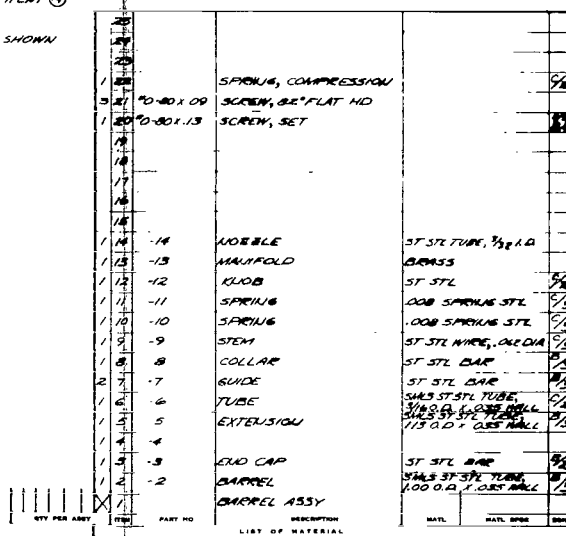 ITEM ④
SHOWN
25
24
23
1 22 SPRING, COMPRESSION
3 21 #0-80 X 09 SCREW, 82° FLAT HD
1 20 #0-80 X .13 SCREW, SET
19
18
17
16
15
1 14 -14 NOZZLE ST STL TUBE, 3/32 I.D
1 13 -13 MANIFOLD BRASS
1 12 -12 KNOB ST STL
1 11 -11 SPRING .008 SPRING STL
1 10 -10 SPRING .008 SPRING STL
1 9 -9 STEM ST STL WIRE, .062 DIA
1 8 8 COLLAR ST STL BAR
2 7 -7 GUIDE ST STL BAR
1 6 -6 TUBE SMLS ST STL TUBE, 3/16 O.D. X .035 WALL
1 5 5 EXTENSION SMLS ST STL TUBE, 1.13 O.D X .035 WALL
1 4 -4
1 3 -3 END CAP ST STL BAR
1 2 -2 BARREL SMLS ST STL TUBE, 1.00 O.D. X .035 WALL
X 1 BARREL ASSY
QTY PER ASSY ITEM PART NO DESCRIPTION MATL MATL SPEC
LIST OF MATERIAL